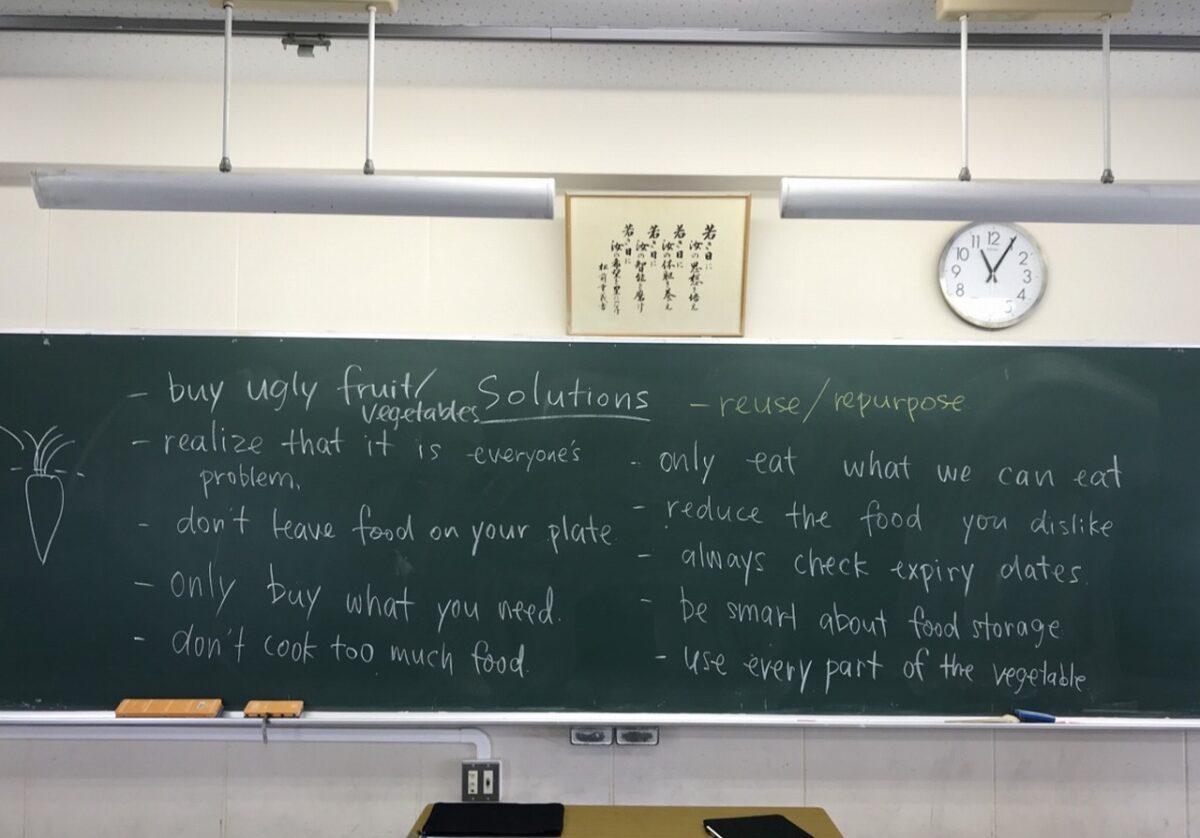 若き日に
汝の思想を培え
若き日に
汝の体躯を養え
若き日に
汝の智能を磨け
若き日に
汝の希望を星につなげ
松前重義書
11 12 2 3 4 5 8 9 10
Solutions
- buy ugly fruit/
vegetables
- realize that it is everyone's
problem.
- don't leave food on your plate
- only buy what you need.
- don't cook too much food.
- reuse/repurpose
- only eat what we can eat
- reduce the food you dislike
- always check expiry dates.
- be smart about food storage
- use every part of the vegetable